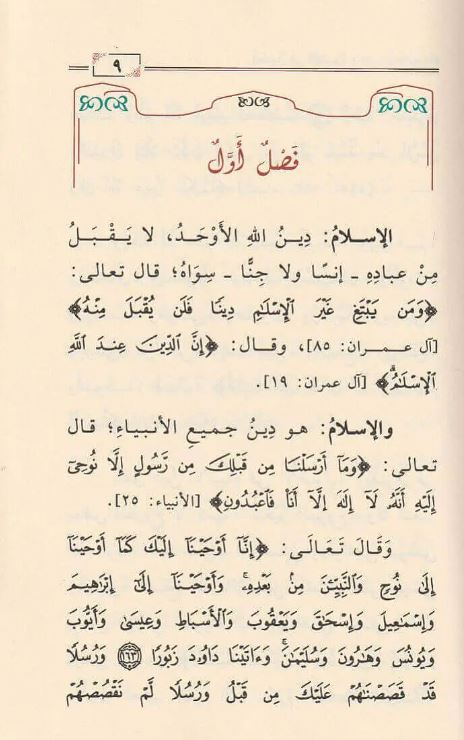 ٩
فَصْلٌ أَوَّلٌ
الإسلامُ: دِينُ اللهِ الأَوْحَدُ، لا يَقْبَلُ
مِنْ عبادِهِ - إنسًا ولا جِنًّا - سِوَاهُ؛ قال تعالى:
﴿وَمَن يَبْتَغِ غَيْرَ الْإِسْلَٰمِ دِينًا فَلَن يُقْبَلَ مِنْهُ﴾
[آل عمران: ٨٥]، وقال: ﴿إِنَّ الدِّينَ عِندَ اللَّهِ
الْإِسْلَٰمُ﴾ [آل عمران: ١٩].
والإسلامُ: هو دِينُ جميعِ الأنبياءِ؛ قال
تعالى: ﴿وَمَا أَرْسَلْنَا مِن قَبْلِكَ مِن رَّسُولٍ إِلَّا نُوحِي
إِلَيْهِ أَنَّهُ لَا إِلَٰهَ إِلَّا أَنَا فَاعْبُدُونِ﴾ [الأنبياء: ٢٥].
وَقَالَ تَعَالَى: ﴿إِنَّا أَوْحَيْنَا إِلَيْكَ كَمَا أَوْحَيْنَا
إِلَىٰ نُوحٍ وَالنَّبِيِّنَ مِنۢ بَعْدِهِۦ ۚ وَأَوْحَيْنَا إِلَىٰ إِبْرَٰهِيمَ
وَإِسْمَٰعِيلَ وَإِسْحَٰقَ وَيَعْقُوبَ وَالْأَسْبَاطِ وَعِيسَىٰ وَأَيُّوبَ
وَيُونُسَ وَهَٰرُونَ وَسُلَيْمَٰنَ ۚ وَءَاتَيْنَا دَاوُۥدَ زَبُورًا ١٦٣ وَرُسُلًا
قَدْ قَصَصْنَٰهُمْ عَلَيْكَ مِن قَبْلُ وَرُسُلًا لَّمْ نَقْصُصْهُمْ